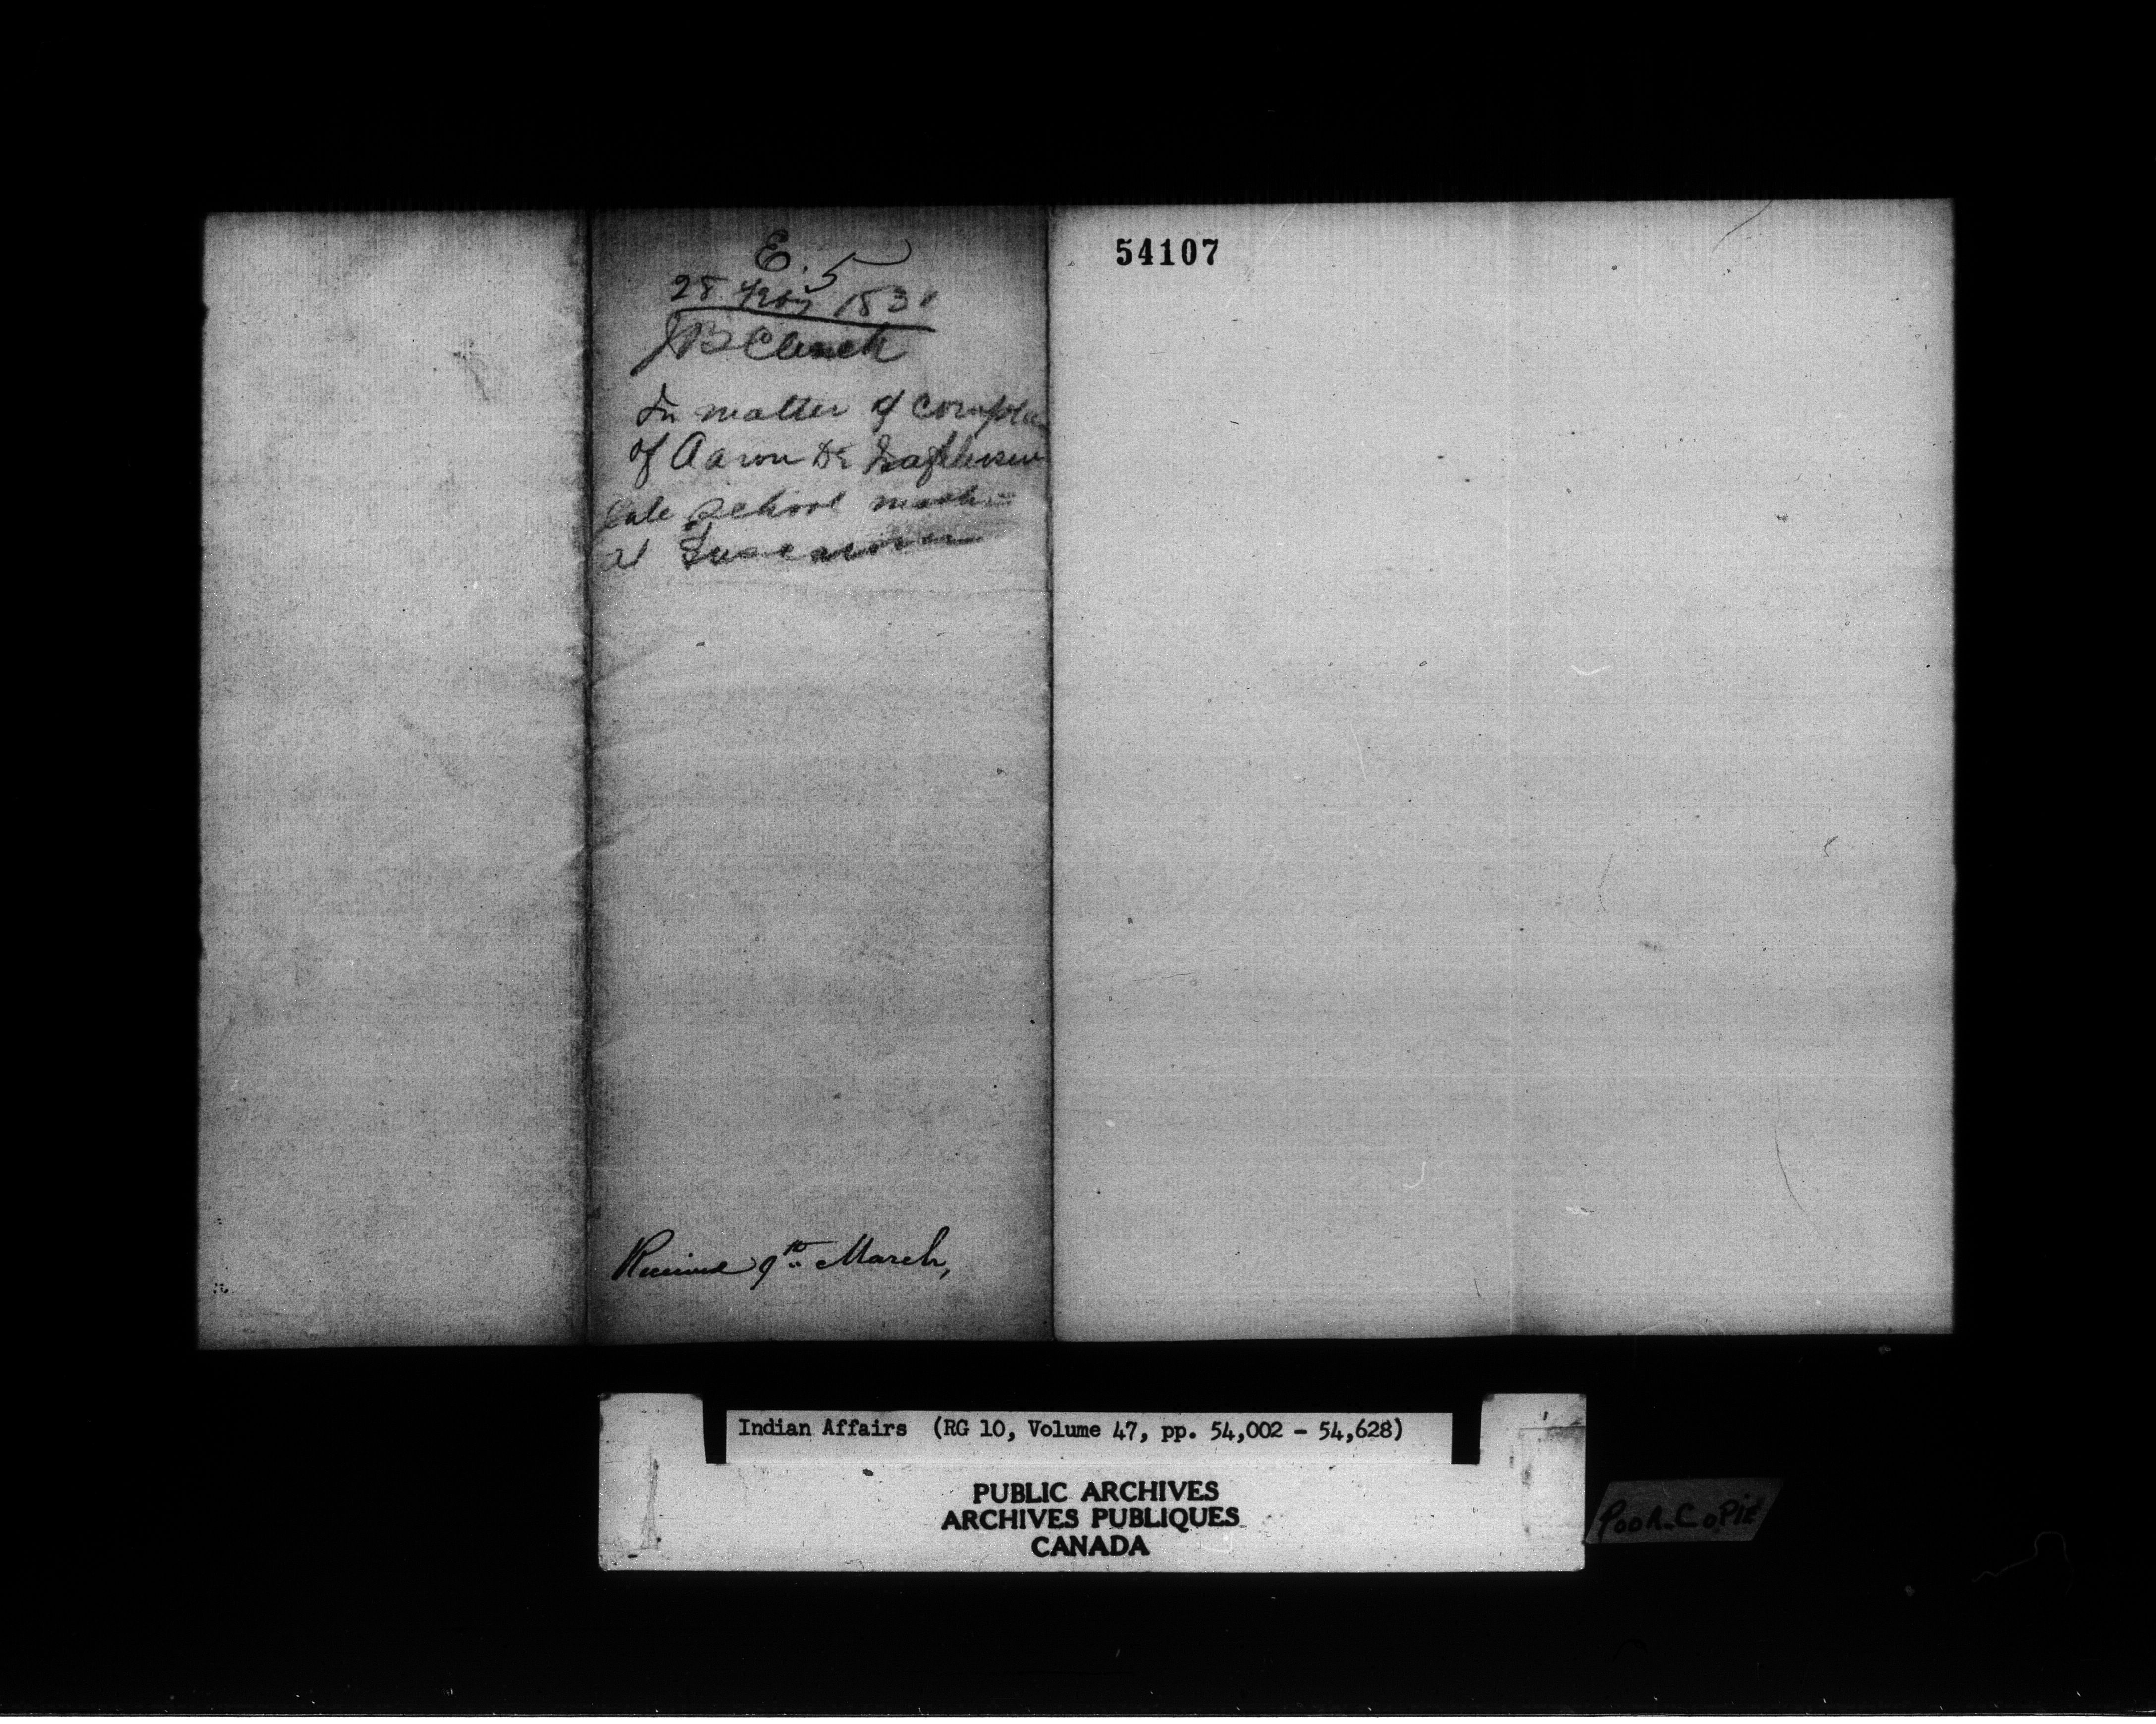 E. 5
28 Feby 183
JB Clench
In matter of Compla
of Aaron De
late School
at
Received 9th March,
54107
Indian Affairs (RG 10, Volume 47, pp. 54,002 - 54,628)
PUBLIC ARCHIVES
ARCHIVES PUBLIQUES
CANADA
POOR COPIE